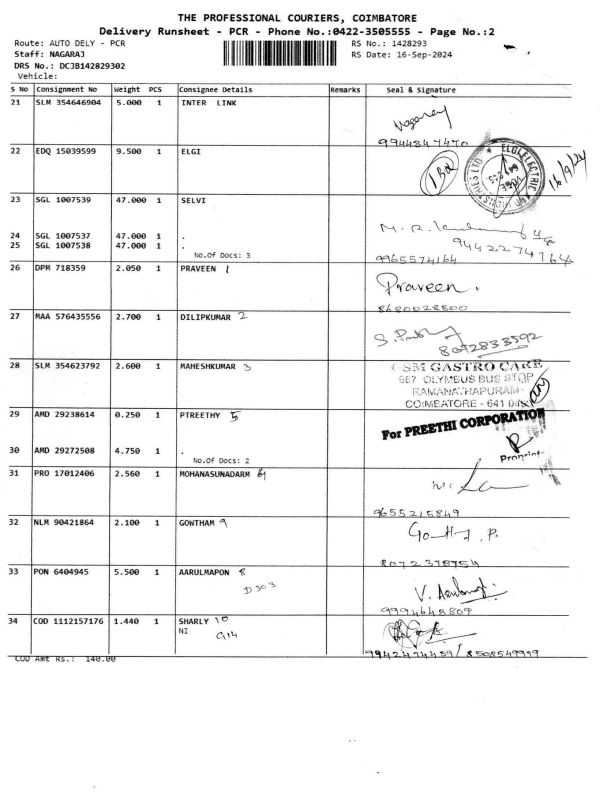 THE PROFESSIONAL COURIERS, COIMBATORE
Delivery Runsheet - PCR - Phone No.:0422-3505555 - Page No.:2
Route: AUTO DELY - PCR RS No.: 1428293
Staff: NAGARAJ RS Date: 16-Sep-2024
DRS No.: DCJB142829302
Vehicle:
S No Consignment No Weight PCS Consignee Details Remarks Seal & Signature
21 SLM 354646904 5.000 1 INTER LINK
Nagaraj
9944847470
22 EDQ 15039599 9.500 1 ELGI
16/9/24
23 SGL 1007539 47.000 1 SELVI
24 SGL 1007537 47.000 1 .
25 SGL 1007538 47.000 1 .
No.Of Docs: 3
9442274164
9965574164
26 DPM 718359 2.050 1 PRAVEEN 1
Praveen.
8680028800
27 MAA 576435556 2.700 1 DILIPKUMAR 2
8072833592
28 SLM 354623792 2.600 1 MAHESHKUMAR 3
GSM GASTRO CARE
OLYMBUS BUS STOP
RAMANATHAPURAM
COIMBATORE - 641 045
29 AMD 29238614 0.250 1 PTREETHY 5
For PREETHI CORPORATION
30 AMD 29272508 4.750 1 .
No.Of Docs: 2
31 PRO 17012406 2.560 1 MOHANASUNADARM
9655215849
32 NLM 90421864 2.100 1 GOWTHAM 9
8072378754
33 PON 6404945 5.500 1 AARULMAPON 8
D303
9994648809
34 COD 1112157176 1.440 1 SHARLY 10
NI G14
9942474459/8508549959
COD Amt Rs.: 140.00